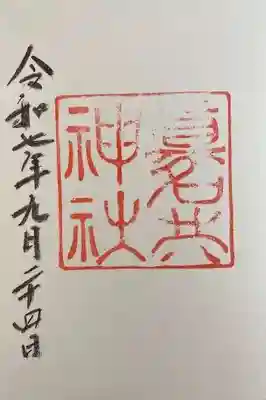 真名井
神社
令和七年九月二十四日